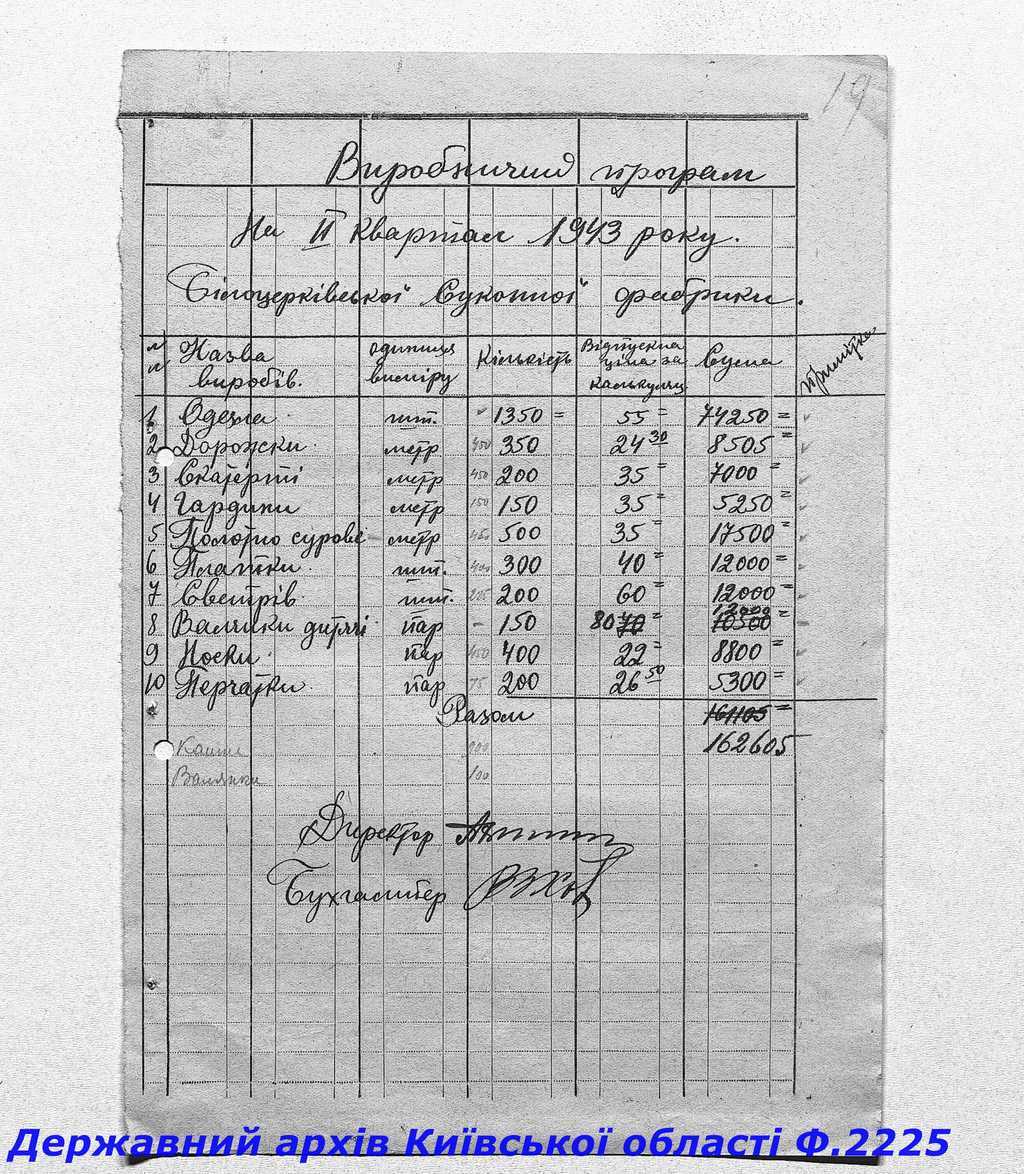 19
Виробничий програм
На II квартал 1943 року.
Білоцерківської Суконної фабрики.
Назва виробів. одиниця виміру Кількість Відпускна ціна за калькуляц Сума примітка
1 Одеяла шт. 1350 = 55 = 74250 =
2 Дорожки метр 450 350 24 30 8505 =
3 Скатерті метр 450 200 35 = 7000 =
4 Гардини метр 150 150 35 = 5250 =
5 Полотно сурове метр 450 500 35 = 17500 =
6 Платки шт. 400 300 40 = 12000 =
7 Светрів шт. 225 200 60 = 12000 =
8 Валянки дитячі пар - 150 80 70 = 12000 10500 =
9 Носки пар 450 400 22 = 8800 =
10 Перчатки пар 75 200 26 50 5300 =
Разом 161105 =
162605
900
Валянки 100
Директор
Бухгалтер
Державний архів Київської області Ф.2225